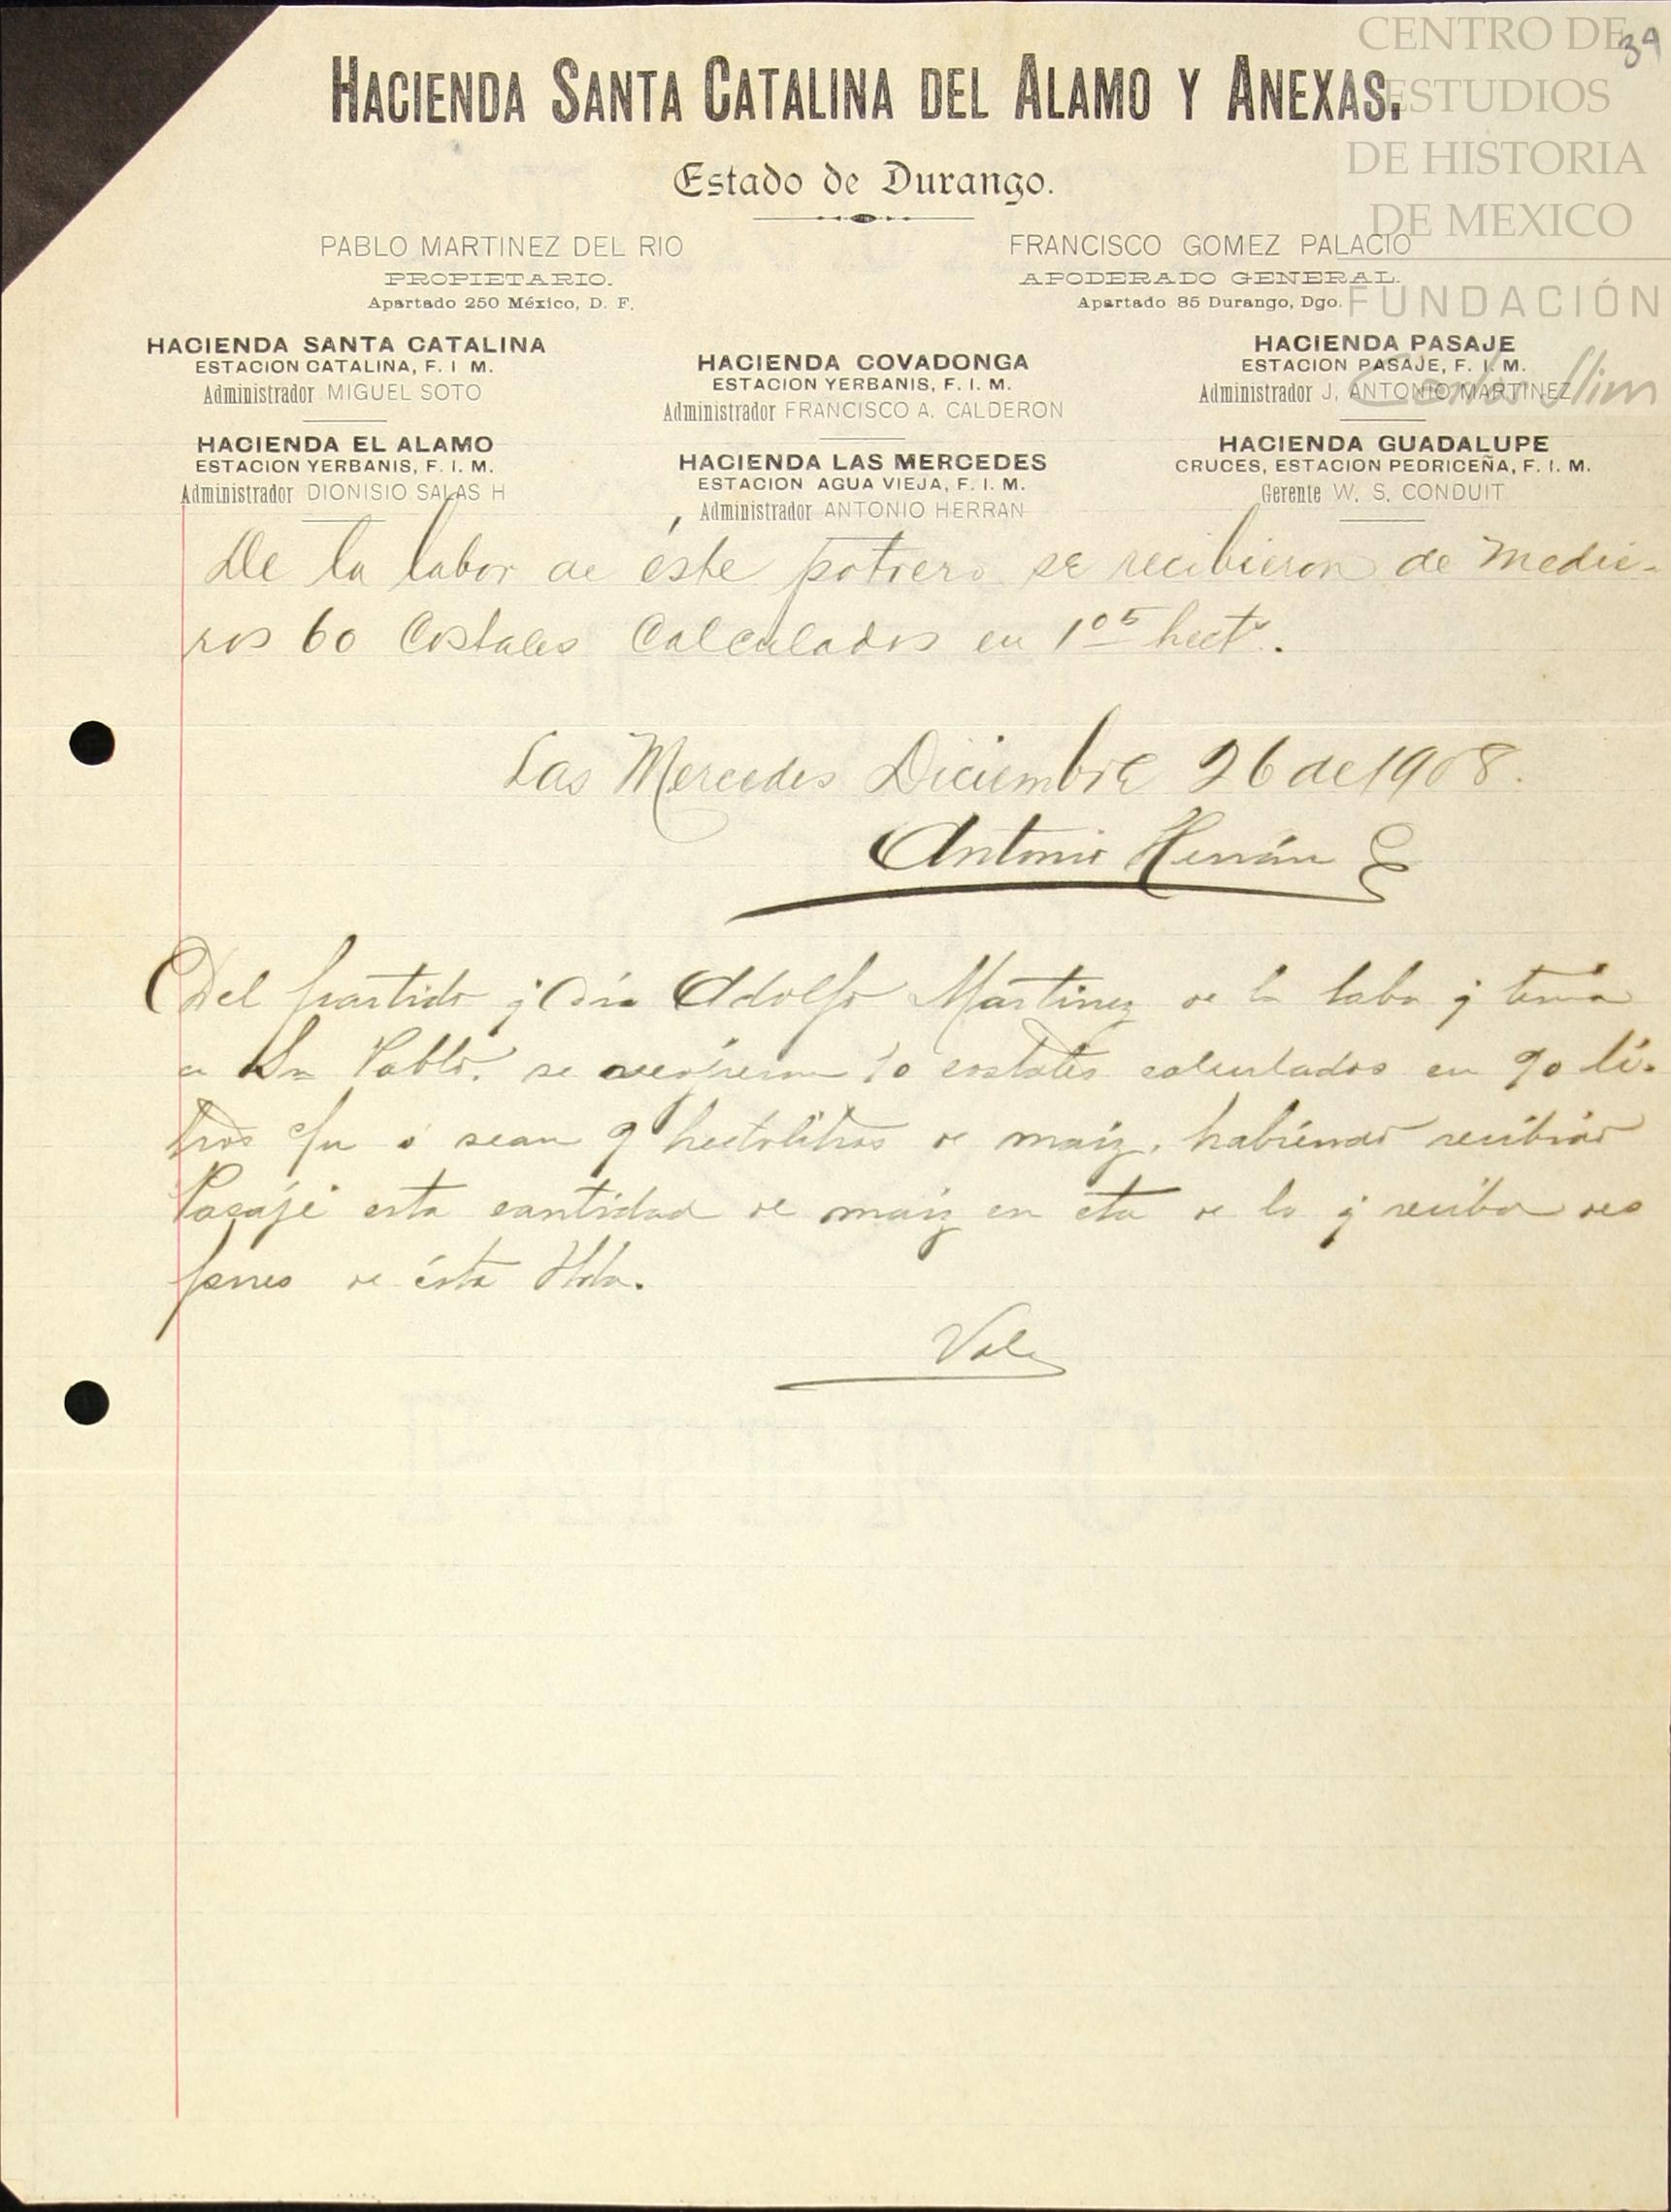 CENTRO DE
ESTUDIOS
DE HISTORIA
DE MEXICO
FUNDACIÓN
Carlos Slim
39
HACIENDA SANTA CATALINA DEL ALAMO Y ANEXAS.
Estado de Durango.
PABLO MARTINEZ DEL RIO
PROPIETARIO.
Apartado 250 México, D. F.
FRANCISCO GOMEZ PALACIO
APODERADO GENERAL.
Apartado 85 Durango, Dgo.
HACIENDA SANTA CATALINA
ESTACION CATALINA, F. I M.
Administrador MIGUEL SOTO
HACIENDA EL ALAMO
ESTACION YERBANIS, F. I. M.
Administrador DIONISIO SALAS H
HACIENDA COVADONGA
ESTACION YERBANIS, F. I. M.
Administrador FRANCISCO A. CALDERON
HACIENDA LAS MERCEDES
ESTACION AGUA VIEJA, F. I. M.
Administrador ANTONIO HERRAN
HACIENDA PASAJE
ESTACION PASAJE, F. I. M.
Administrador J. ANTONIO MARTINEZ
HACIENDA GUADALUPE
CRUCES, ESTACION PEDRICEÑA, F. I. M.
Gerente W. S. CONDUIT
De la labor de éste potrero se recibieron de medie-
ros 60 Costales Calculados en 105 hects.
Las Mercedes Diciembre 26 de 1908.
Antonio Herrán
Del partido q Adolfo Martinez de la labor q tenia
en Sn Pablo. se recojieron 10 costales calculados en 90 li-
tros c/u ó sean 9 hectolitros de maiz, habiendo recibido
Pasaje esta cantidad de maiz en cta de lo q reciba des
pues de ésta Hda.
Vale